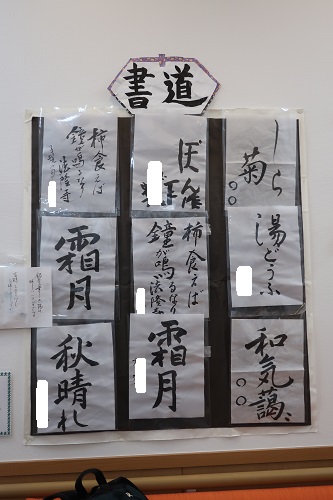 書道
しら
菊
ぼ雀
柿食えば
鐘が鳴るなり
法隆寺
湯どうふ
柿食えば
鐘が鳴るなり
法隆寺
霜月
和気藹々
霜月
秋晴れ